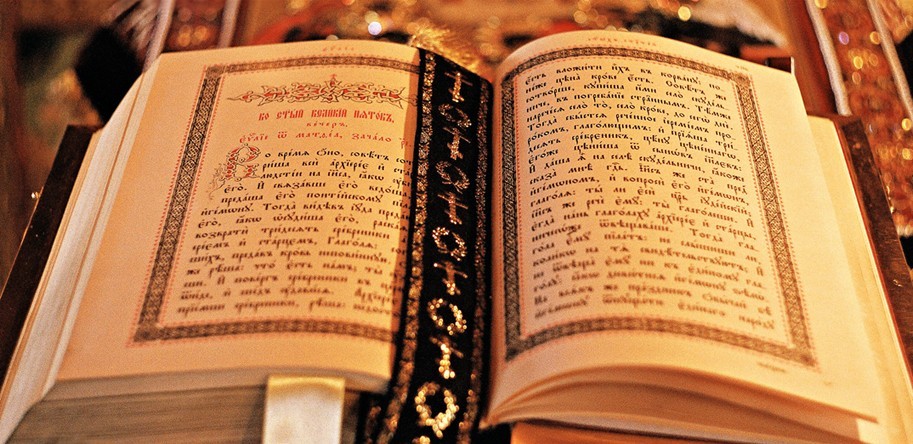 Во ст҃ый великїй пѧтокъ,
вечеръ.
Еѵⷢ҇лїе ѿ матѳеа, зачало
Во времѧ оно, совѣтъ сот
риша вси архїерее и ста
людстїи на і҆и҃са, ꙗкѡ убї
его. И связавше его ведоша
предаша его понтїйскому п
игемону. Тогда видѣвъ їуда преда
его, ꙗкѡ ѡсудиша его, раска
возврати тридесѧть сребреник
еремъ и старцемъ, глаголѧ: со
шихъ, предавъ кровь неповинную.
же рѣша: что есть намъ; ты
ши. И повергъ сребреники въ ц
ѿиде, и шедъ удависѧ. Архїере
прїимше сребреники, рѣша: недос
есть вложити ихъ въ корвану: по
неже цѣна крове есть. Совѣтъ же
сотворше, купиша ими село скудель
ниче, въ погребанїе страннымъ. Тѣмже
наречесѧ село то, село крове, до сегѡ дне.
Тогда сбыстсѧ реченное їеремїемъ про
рокомъ, глаголющимъ: и прїѧша три
десѧть сребреникъ, цѣну цѣненнагѡ,
егоже цѣниша ѿ сынѡвъ їи҃левъ:
И даша ѧ на село скудельниче, ꙗкоже
сказа мнѣ гд҇ь. Їи҃съ же ста пред
игемономъ, и вопроси его игемонъ
глаголѧ: ты ли еси цр҃ь їудейскїй;
їи҃съ же рече ему: ты глаголеши. И
егда нань глаголаху архїерее и старцы
ничесоже ѿвѣщаваше. Тогда гла
гола ему пїлатъ: не слышиши ли,
колика на тѧ свидѣтельствуютъ; И
не ѿвѣща ему ни къ единому гла
голу: ꙗкѡ дивитисѧ игемону ѕѣлѡ.
На всѧкъ же праздникъ обычай бѣ
игемону ѿпущати единаго народу